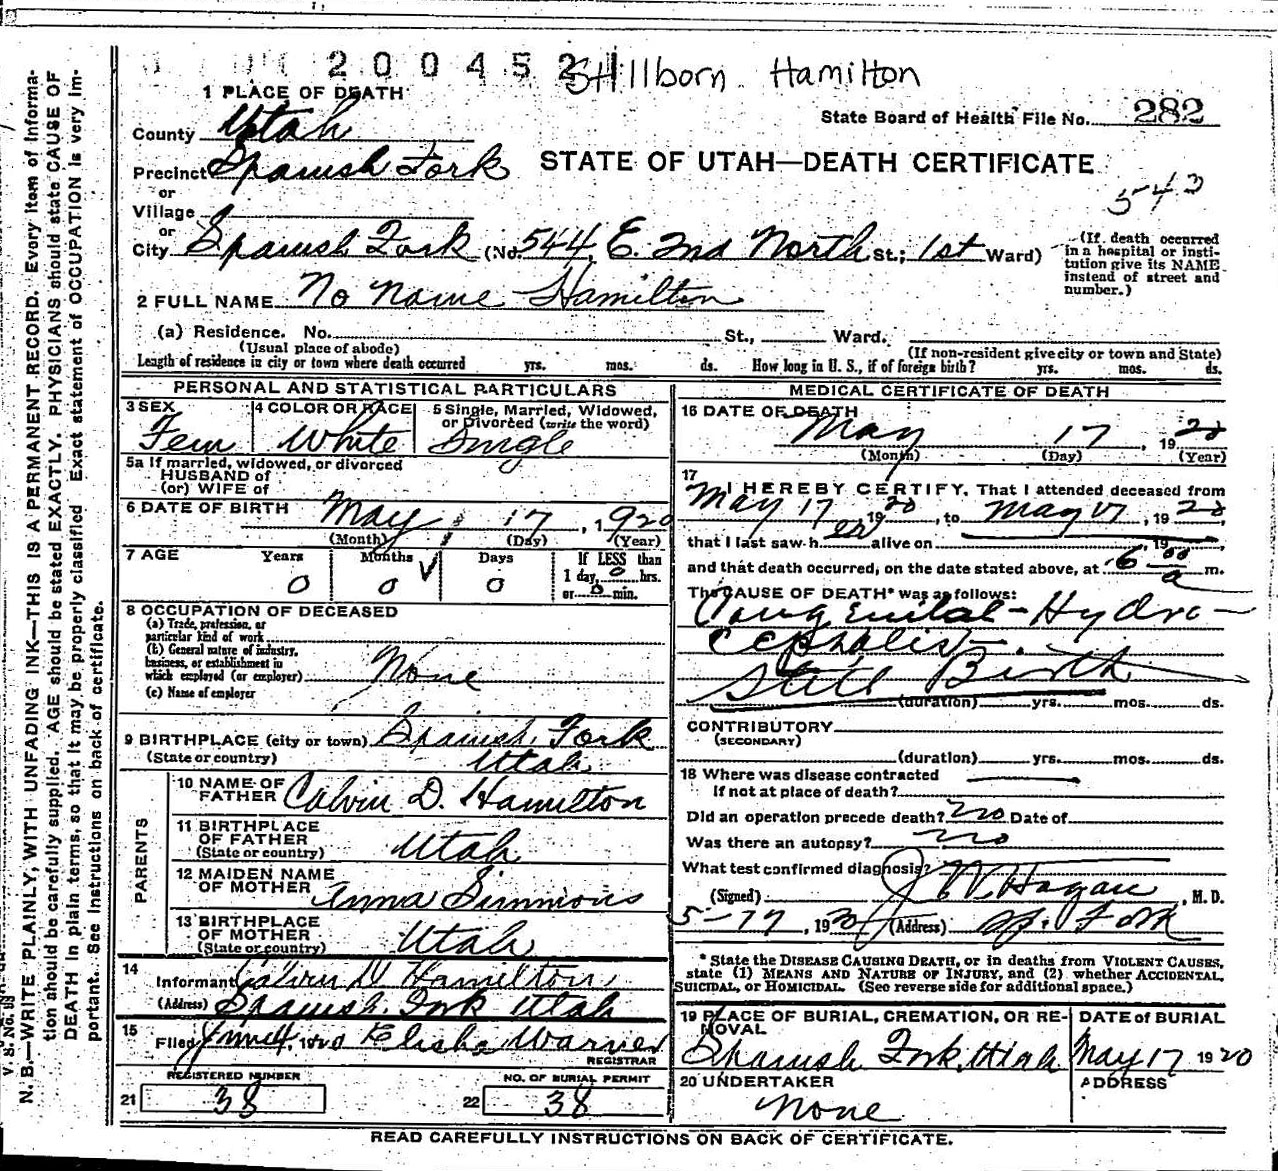 200452
Stillborn Hamilton
1 PLACE OF DEATH
State Board of Health File No. 282
County Utah
STATE OF UTAH—DEATH CERTIFICATE
Precinct Spanish Fork
or
543
Village
or
City Spanish Fork (No. 544, E. 2nd North St.; 1st Ward)
(If death occurred in a hospital or institution give its NAME instead of street and number.)
2 FULL NAME No Name Hamilton
(a) Residence. No. St., Ward.
(Usual place of abode) (If non-resident give city or town and State)
Length of residence in city or town where death occurred yrs. mos. ds. How long in U. S., if of foreign birth? yrs. mos. ds.
PERSONAL AND STATISTICAL PARTICULARS
3 SEX Fem
4 COLOR OR RACE White
5 Single, Married, Widowed, or Divorced (write the word) Single
5a If married, widowed, or divorced
HUSBAND of
(or) WIFE of
6 DATE OF BIRTH May 17, 1920
(Month) (Day) (Year)
7 AGE Years Months Days If LESS than
0 0 0 1 day, 0 hrs.
or 0 min.
8 OCCUPATION OF DECEASED
(a) Trade, profession, or
particular kind of work
(b) General nature of industry,
business, or establishment in
which employed (or employer) None
(c) Name of employer
9 BIRTHPLACE (city or town) Spanish Fork
(State or country) Utah
PARENTS
10 NAME OF FATHER Calvin D. Hamilton
11 BIRTHPLACE OF FATHER
(State or country) Utah
12 MAIDEN NAME OF MOTHER Anna Simmons
13 BIRTHPLACE OF MOTHER
(State or country) Utah
14 Informant Calvin D Hamilton
(Address) Spanish Fork Utah
15 Filed June 4, 1920 Elisha Warner
REGISTRAR
REGISTERED NUMBER NO. OF BURIAL PERMIT
21 38 22 38
MEDICAL CERTIFICATE OF DEATH
16 DATE OF DEATH
May 17, 1920
(Month) (Day) (Year)
17 I HEREBY CERTIFY, That I attended deceased from
May 17 1920, to May 17, 1920,
that I last saw her alive on 19
and that death occurred, on the date stated above, at 6 00 a m.
The CAUSE OF DEATH* was as follows:
Congenital-Hydro-
cephalis
Still Birth
(duration) yrs. mos. ds.
CONTRIBUTORY
(SECONDARY)
(duration) yrs. mos. ds.
18 Where was disease contracted
if not at place of death?
Did an operation precede death? no Date of
Was there an autopsy? no
What test confirmed diagnosis?
(Signed) J W Hagan, M. D.
5-17, 1920 (Address) Sp. Fork
* State the DISEASE CAUSING DEATH, or in deaths from VIOLENT CAUSES,
state (1) MEANS AND NATURE OF INJURY, and (2) whether ACCIDENTAL,
SUICIDAL, or HOMICIDAL. (See reverse side for additional space.)
19 PLACE OF BURIAL, CREMATION, OR REMOVAL
Spanish Fork, Utah
DATE of BURIAL
May 17 1920
20 UNDERTAKER
None
ADDRESS
READ CAREFULLY INSTRUCTIONS ON BACK OF CERTIFICATE.
N. B.—WRITE PLAINLY, WITH UNFADING INK—THIS IS A PERMANENT RECORD. Every item of information should be carefully supplied. AGE should be stated EXACTLY. PHYSICIANS should state CAUSE OF DEATH in plain terms, so that it may be properly classified. Exact statement of OCCUPATION is very important. See instructions on back of certificate.